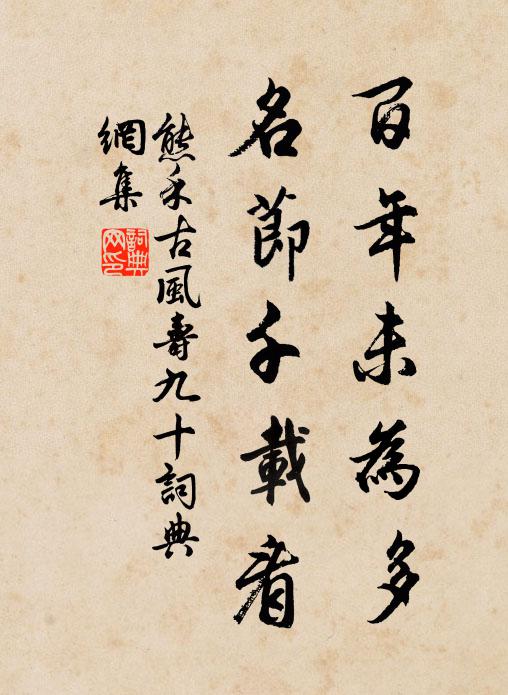 百年未為多
名節千載看
熊禾古風壽九十詞典
網集
詞典
网印